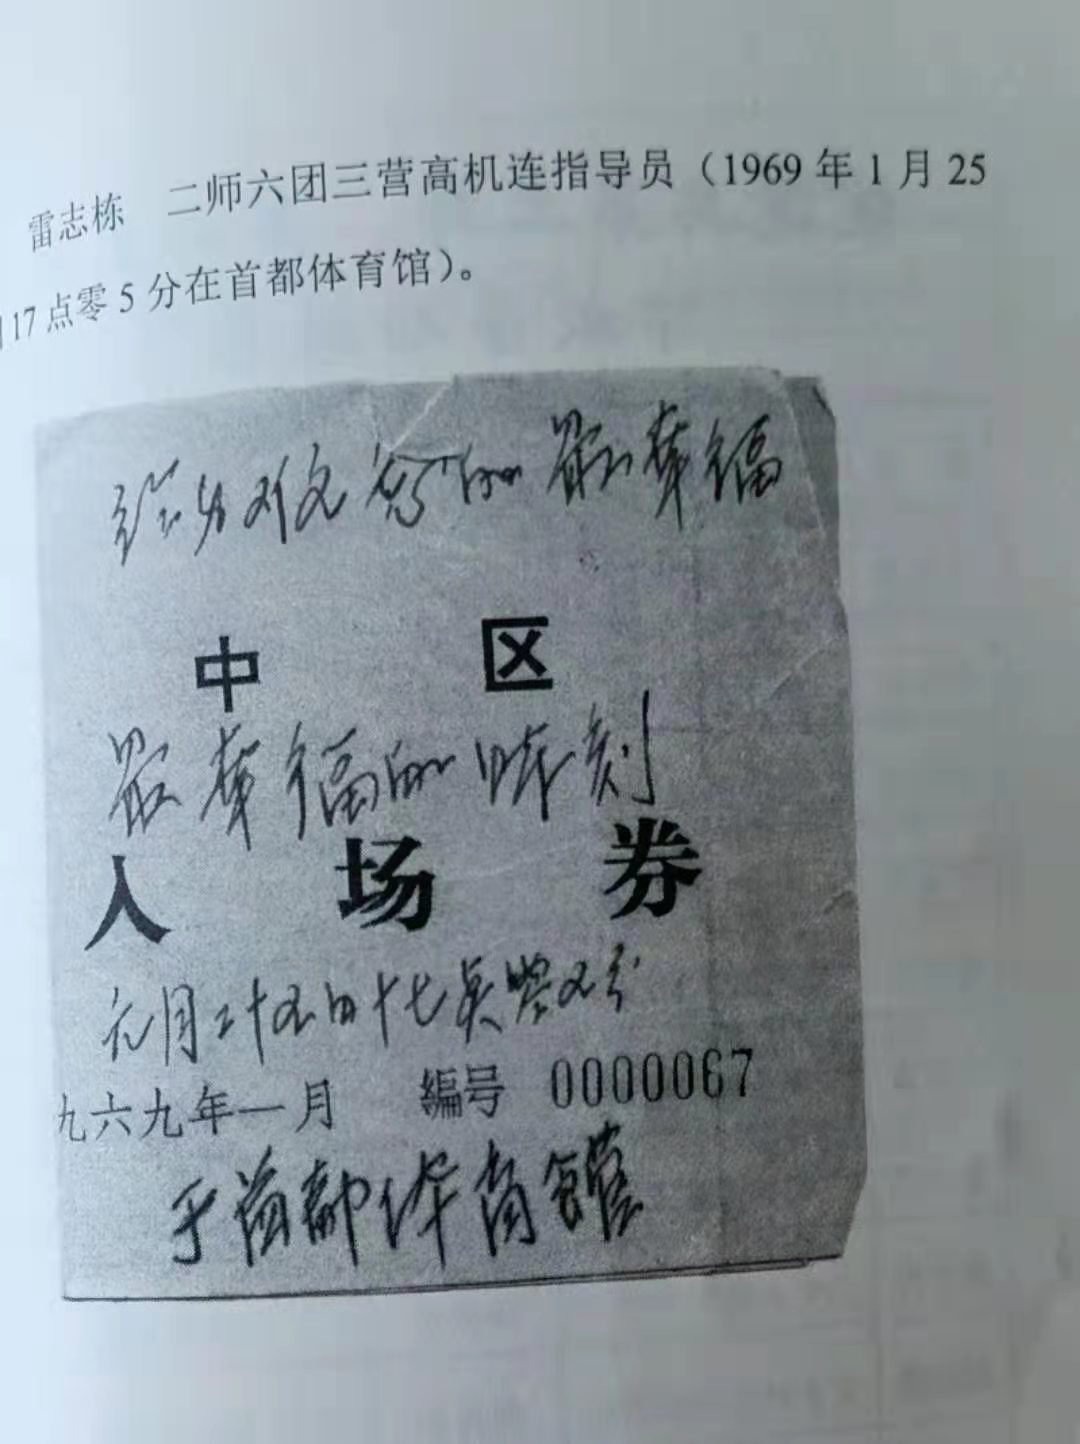 雷志栋 二师六团三营高机连指导员（1969年1月25
日17点零5分在首都体育馆）。
的最幸福
中 区
最幸福的时刻
入 场 券
元月二十五日十七点零五分
九六九年一月 编号 0000067
于首都体育馆